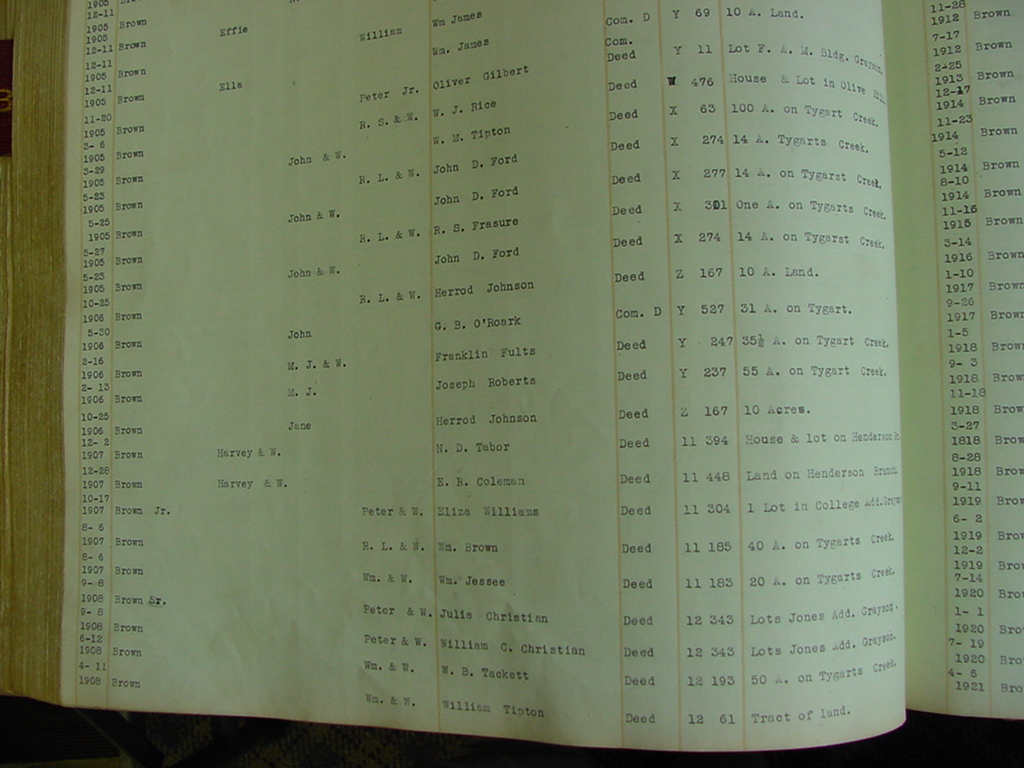 1905
12-11
1905 Brown Effie Wm James Com. D Y 69 10 A. Land.
12-11
1905 Brown William Wm. James Com. Deed Y 11 Lot F. A. M. Bldg. Grayson.
12-11
1905 Brown Ella Peter Jr. Oliver Gilbert Deed W 476 House & Lot in Olive Hill.
11-20
1905 Brown R. S. & W. W. J. Rice Deed X 63 100 A. on Tygart Creek.
3- 6
1905 Brown John & W. W. M. Tipton Deed X 274 14 A. Tygarts Creek.
3-29
1905 Brown R. L. & W. John D. Ford Deed X 277 14 A. on Tygarst Creek.
5-23
1905 Brown John & W. John D. Ford Deed X 301 One A. on Tygarts Creek.
5-25
1905 Brown R. L. & W. R. S. Frasure Deed X 274 14 A. on Tygarst Creek.
5-27
1905 Brown John & W. John D. Ford Deed Z 167 10 A. Land.
5-23
1905 Brown R. L. & W. Herrod Johnson Com. D Y 527 31 A. on Tygart.
10-25
1906 Brown John G. B. O'Roark Deed Y 247 35½ A. on Tygart Creek.
5-30
1906 Brown M. J. & W. Franklin Fults Deed Y 237 55 A. on Tygart Creek.
2-16
1906 Brown M. J. Joseph Roberts
2- 13
1906 Brown Jane Herrod Johnson Deed Z 167 10 Acres.
10-25
1906 Brown
12- 2
1907 Brown Harvey & W. N. D. Tabor Deed 11 394 House & lot on Henderson Br
12-28
1907 Brown Harvey & W. E. R. Coleman Deed 11 448 Land on Henderson Branch.
10-17
1907 Brown Jr. Peter & W. Eliza Williams Deed 11 304 1 Lot in College Add. Grayson
8- 6
1907 Brown R. L. & W. Wm. Brown Deed 11 185 40 A. on Tygarts Creek.
8- 6
1907 Brown Wm. & W. Wm. Jessee Deed 11 183 20 A. on Tygarts Creek.
9- 8
1908 Brown Sr. Peter & W. Julia Christian Deed 12 343 Lots Jones Add. Grayson.
9- 8
1908 Brown Peter & W. William C. Christian Deed 12 343 Lots Jones Add. Grayson.
6-12
1908 Brown Wm. & W. W. B. Tackett Deed 12 193 50 A. on Tygarts Creek.
4- 11
1908 Brown Wm. & W. William Tipton Deed 12 61 Tract of land.
11-28
1912 Brown
7-17
1912 Brown
2-25
1913 Brown
12-17
1914 Brown
11-23
1914 Brown
5-12
1914 Brown
8-10
1914 Brown
11-16
1915 Brown
3-14
1916 Brown
1-10
1917 Brown
9-26
1917 Brown
1-5
1918 Brown
9- 3
1918 Brown
11-18
1918 Brown
3-27
1818 Brow
8-28
1918 Brow
9-11
1919 Brow
6- 2
1919 Brow
12-2
1919 Brow
7-14
1920 Bro
1- 1
1920 Bro
7- 19
1920 Bro
4- 6
1921 Bro